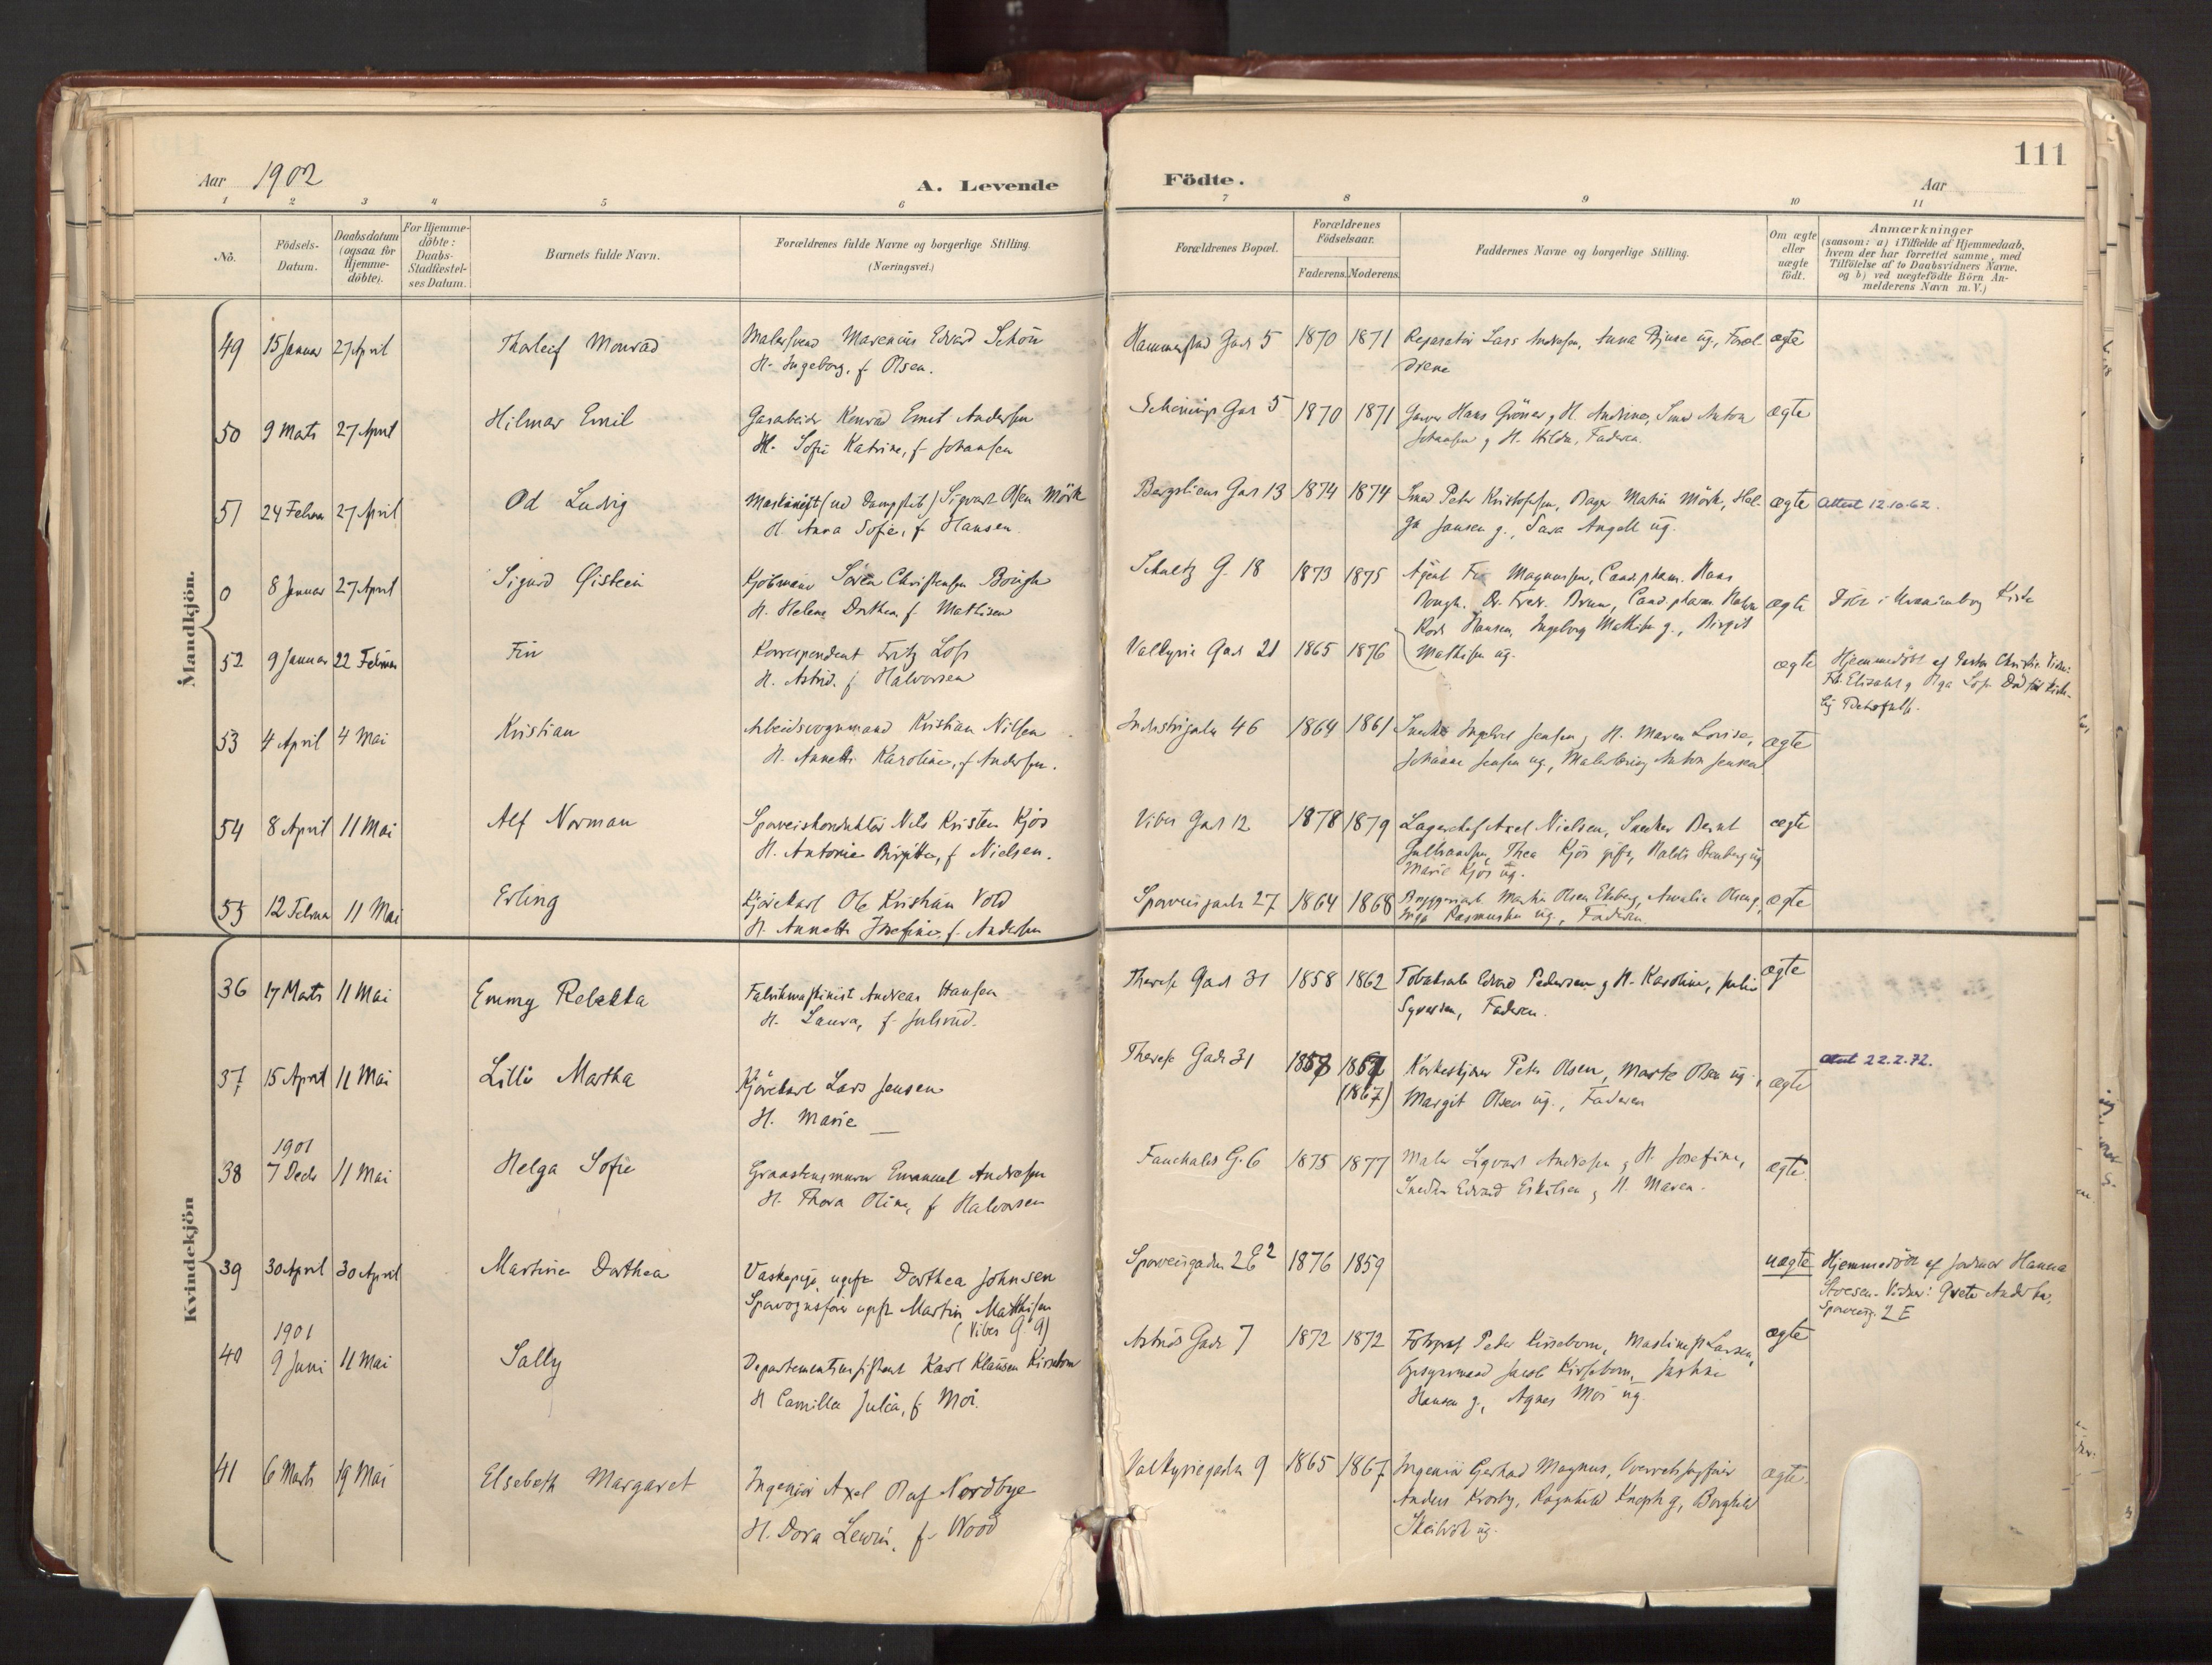 111
Aar 1902
A. Levende Födte.
Aar
1 2 3 4 5 6 7 8 9 10 11
No.
Födsels-
Datum.
Daabsdatum
(ogsaa for
Hjemme-
döbte).
For Hjemme-
döbte:
Daabs-
Stadfæstel-
ses Datum.
Barnets fulde Navn.
Forældrenes fulde Navne og borgerlige Stilling.
(Næringsvei.)
Forældrenes Bopæl.
Forældrenes
Födselsaar.
Faderens. Moderens.
Faddernes Navne og borgerlige Stilling.
Om ægte
eller
uægte
födt.
Anmærkninger
(saasom: a) i Tilfælde af Hjemmedaab,
hvem der har forrettet samme, med
Tilföielse af to Daabsvidners Navne,
og b) ved uægtefödte Börn An-
melderens Navn m. V.)
Mandkjön.
49 15 Januar 27 April Thorleif Monrad Malersvend Marenius Edvard Schön
H. Ingeborg, f. Olsen.
Gade 5 1870 1871 Lars Andersen, Anna ug., Foræl-
drene
ægte
50 9 Marts 27 April Hilmar Emil Gasarbeider Konrad Emil Andersen
H. Sofie Katrine, f. Johansen
Gade 5 1870 1871 Hans Gröner g H. Andrine, Smed Anton
Johansen g H. Hilda, Faderen.
ægte
51 24 Februar 27 April Od Ludvig Maskinist (ved Dampskib) Sigvart Olsen Mörk
H. Anna Sofie, f. Hansen.
Bergsliens Gade 13 1874 1874 Smed Peter Kristofersen, Bager Martin Mörk, Hel-
ga Jansen g., Sara Angell ug.
ægte Attest 12.10.62.
0 8 Januar 27 April Sigurd Øistein Kjöbmand Sören Christensen Bough
H. Helene Dorthea f. Mathisen
Schultz G. 18 1873 1875 Agent Magnussen, Cand. pharm. Hans
Bough. Fredr. Brun, Cand. pharm.
Hansen, Ingeborg Mathisen g., Birgit
Mathisen ug.
ægte Döbt i Uranienborg Kirke
52 9 Januar 22 Februar Fin Korrespondent Fritz Loss
H. Astrid, f. Halvorsen
Valkyrie Gade 21 1865 1876
ægte Hjemmedöbt af Pastor Christie. Vidn:
Frk. Elisabet g Olga Loss. Död för Kirke-
lig
53 4 April 4 Mai Kristian Arbeidsvognmand Kristian Nilsen
H. Annette Karoline, f. Andersen.
Industrigaden 46 1864 1861 Snedker Ingebret Jensen g H. Maren Lovise,
Johanne Jensen ug., Anton Jensen
ægte
54 8 April 11 Mai Alf Norman Sporveiskonduktör Nils Kristen Kjös
H. Antonie Birgitte, f. Nielsen.
Vibes Gade 12 1878 1879 Lagerchef Axel Nielsen, Snedker Bernt
Gulbrandsen, Thea Kjös gift, Stenberg ug
Marie Kjös ug.
ægte
55 12 Februar 11 Mai Erling Kjörekarl Ole Kristian Vold
H. Annette Josefine, f. Andersen
Sporveisgaden 27 1864 1868 Bryggeriarb. Martin Olsen Ekeberg, Amalie Olsen g.,
Inga Rasmussen ug., Faderen.
ægte
Kvindekjön
36 17 Marts 11 Mai Emmy Rebekka Fabrikmaskinist Andreas Hansen
H. Laura, f. Julsrud.
Therese Gade 31 1858 1862 Tobaksarb. Edvard Pedersen g H. Karoline, Julie
Syversen, Faderen.
ægte
37 15 April 11 Mai Lilli Martha Kjörekarl Lars Jensen
H. Marie —
Therese Gade 31 1857 1867
(1867)
Kirketjener Peter Olsen, Marte Olsen ug.,
Margit Olsen ug., Faderen
ægte Attest 22.2.72.
38 1901
7 Decbr 11 Mai Helga Sofie Graastensmurer Emanuel Andersen
H. Thora Oline, f. Halvorsen
Fauchalds G. 6 1875 1877 Maler Sigvart Andersen g H. Josefine,
Snedker Edvard Eskilsen g H. Maren.
ægte.
39 30 April 30 April Martine Dorthea Vaskepige ugift Dorthea Johnsen
ugift Martin Mathisen
(Vibes G. 9)
Sporveisgaden 2 E 2 1876 1859
uægte Hjemmedöbt af Jordmor Hanna
Vidner: Grete Andersen,
Sporveisg. 2 E
40 1901
9 Juni 11 Mai Sally Departementsassistent Karl Klausen Kirsebom
H Camilla Julia, f. Moi.
Astrids Gade 7 1872 1872 Fotograf Peter Kirsebom, Maskinist Larsen,
Jacob Kirsebom,
Hansen g., Agnes Moi ug.
ægte
41 6 Marts 19 Mai Elsebeth Margaret Ingeniör Axel Olaf Nordbye
H. Dora Lewin, f. Wood
Valkyriegaden 9 1865 1867 Ingeniör Gerhard Magnus, Overretssagförer
Anders Krosby, Ragnhild g., Borghild
ug.
ægte.